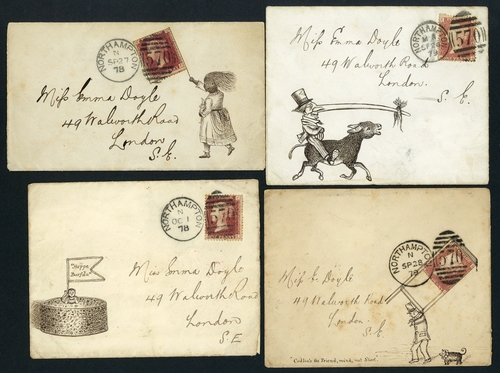 NORTHAMPTON
N
SP 27
78
570
Miss Emma Doyle
49 Walworth Road
London
S.E.
NORTHAMPTON
SP 26
78
570
Miss Emma Doyle
49 Walworth Road
London.
S.E.
NORTHAMPTON
N
OC 1
78
570
Miss Emma Doyle
49 Walworth Road
London
S.E
NORTHAMPTON
N
SP 28
78
570
Miss E. Doyle
49 Walworth Road
London.
S.E.
"Codlin's the Friend, mind, not Short.